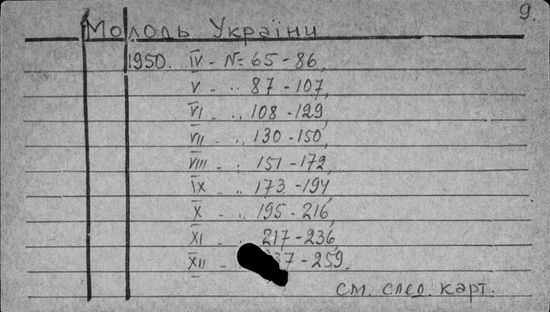 9.
Молодь України
1950. IV - № 65-86,
V - „ 87-107,
VI - „ 108-129,
VII - „ 130-150,
VIII - „ 151-172,
IX - „ 173-194,
X - „ 195-216,
XI - „ 217-236,
XII - 37-259.
см. след. карт.